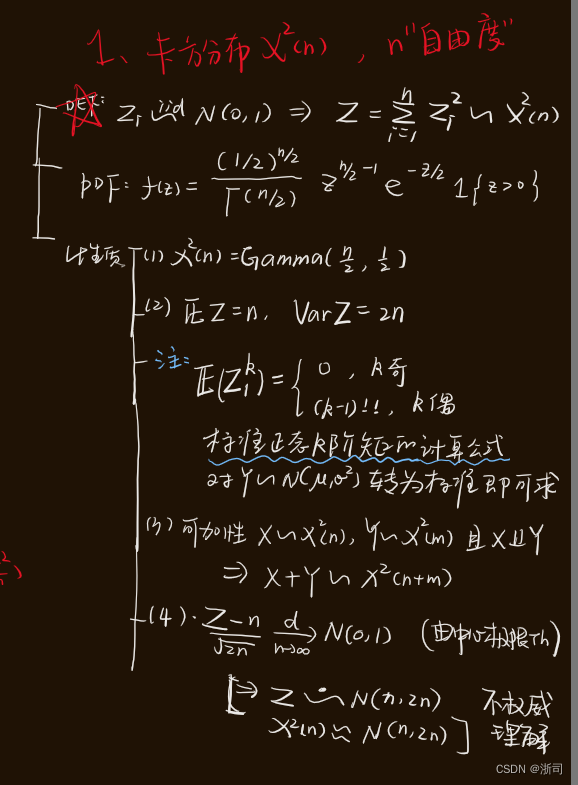 1、卡方分布 χ²(n) ，n"自由度"
DEF: Z_i iid N(0,1) ⇒ Z = ∑_{i=1}^{n} Z_i² ~ χ²(n)
PDF: f(z) = \frac{(1/2)^{n/2}}{Γ(n/2)} z^{n/2-1} e^{-z/2} 1{z>0}
性质 (1) χ²(n) = Gamma(n/2, 1/2)
(2) 𝔼Z=n, VarZ=2n
注: 𝔼(Z_1^k) = { 0 , k奇
(k-1)!! , k偶
标准正态k阶矩的计算公式
对Y~N(μ,σ²)转为标准即可求
(3) 可加性 X~χ²(n), Y~χ²(m) 且 X⫫Y
⇒ X+Y ~ χ²(n+m)
(4). \frac{Z-n}{\sqrt{2n}} \xrightarrow[n→∞]{d} N(0,1) (由中心极限Th)
[⇒ Z ~ N(n,2n) 不权威
χ²(n) ≈ N(n,2n) ] 理解
CSDN @浙司